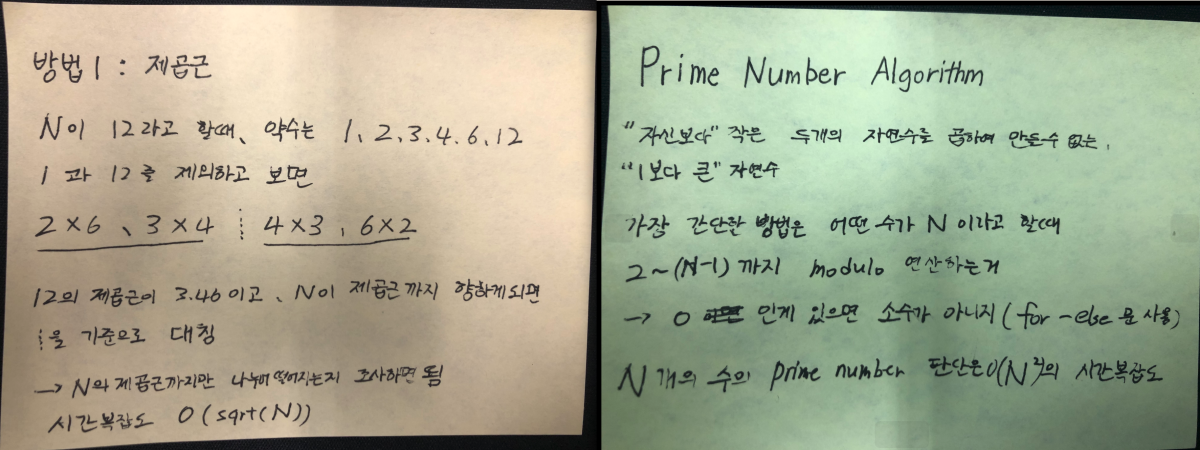 방법 1 : 제곱근
N이 12라고 할때, 약수는 1, 2, 3, 4, 6, 12
1 과 12를 제외하고 보면
2×6 , 3×4 ⋮ 4×3 , 6×2
12의 제곱근이 3.46 이고, N이 제곱근 까지 향하게되면
⋮을 기준으로 대칭
→ N의 제곱근까지만 나누어 떨어지는지 조사하면 됨
시간복잡도 O(sqrt(N))
Prime Number Algorithm
"자신보다" 작은 두개의 자연수를 곱하여 만들수 없는,
"1보다 큰" 자연수
가장 간단한 방법은 어떤 수가 N 이라고 할때
2~(N-1) 까지 modulo 연산하는거
→ 0 인게 있으면 소수가 아니지 (for-else 문 사용)
N 개의 수의 prime number 판단은 O(N²)의 시간복잡도